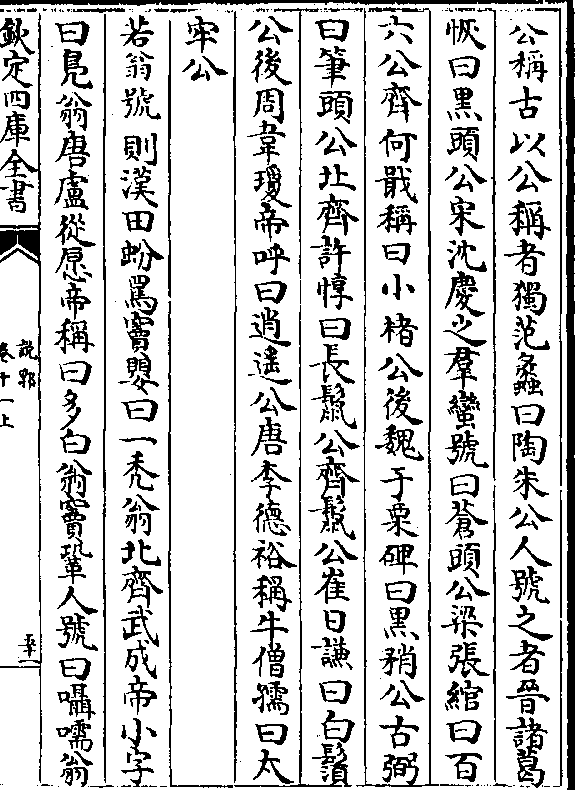 公稱古以公稱者獨范蠡曰陶朱公人號之者晉諸葛
恢曰黑頭公宋沈慶之羣蠻號曰蒼頭公梁張綰曰百
六公齊何戢稱曰小褚公後魏于栗磾曰黑矟公古弼
曰筆頭公北齊許惇曰長鬣公齊鬣公崔日謙曰白鬚
公後周韋瓊帝呼曰逍遥公唐李德裕稱牛僧孺曰太
牢公
若翁號則漢田蚡罵竇嬰曰一秃翁北齊武成帝小字
曰鳬翁唐盧從愿帝稱曰多白翁竇鞏人號曰囁嚅翁
欽定四庫全書
説郛
卷十一上